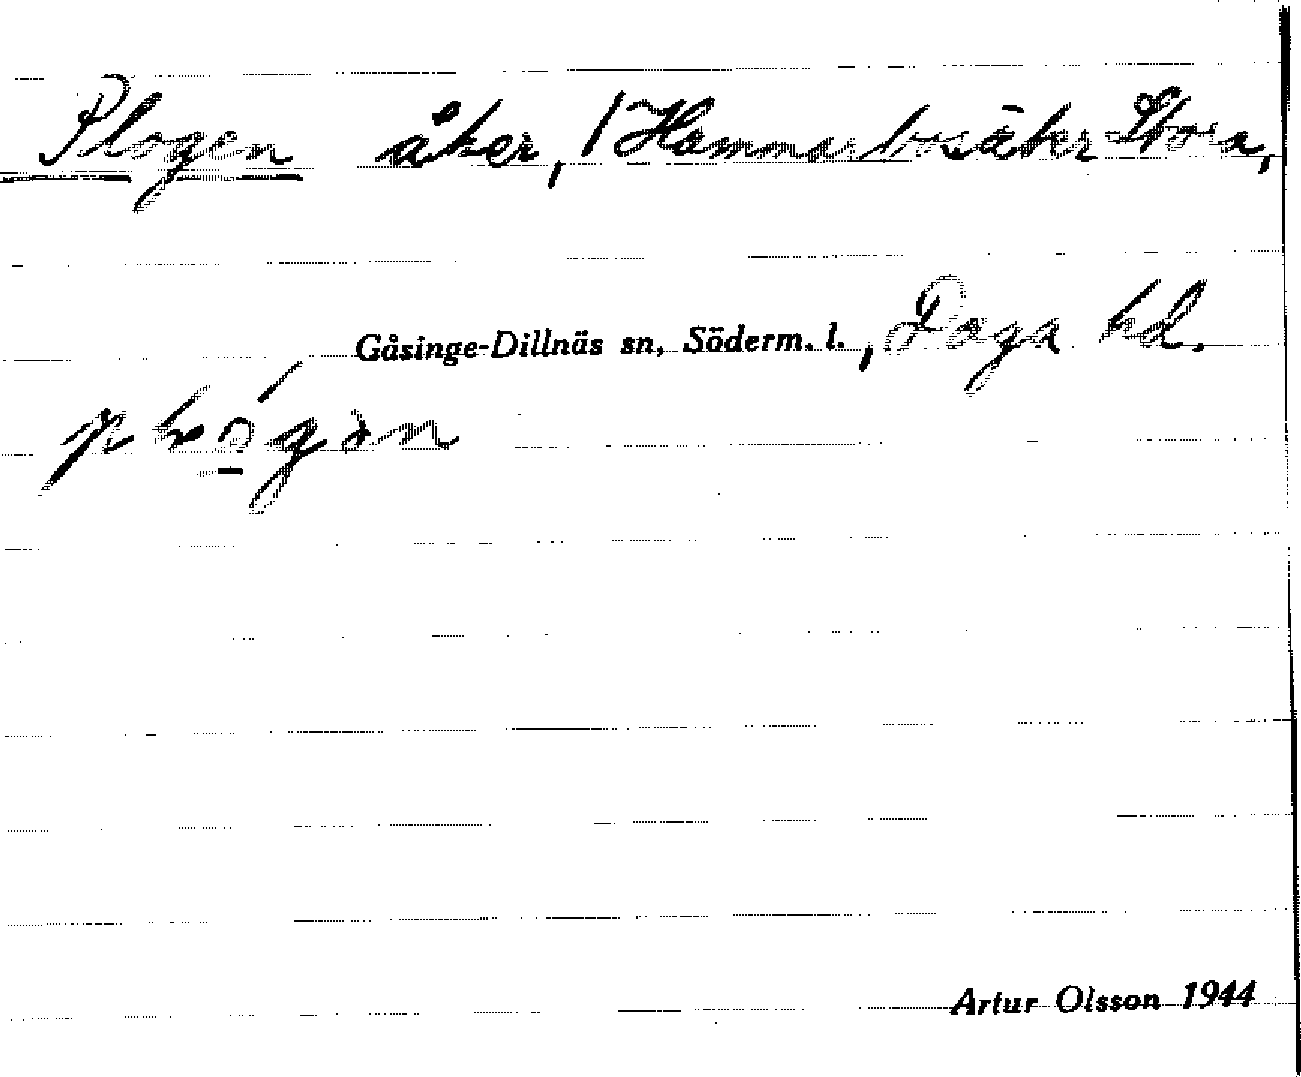 Plogen åker, Hammarbosäter Stora,
Gåsinge-Dillnäs sn, Söderm. l., Daga hd.
Artur Olsson 1944